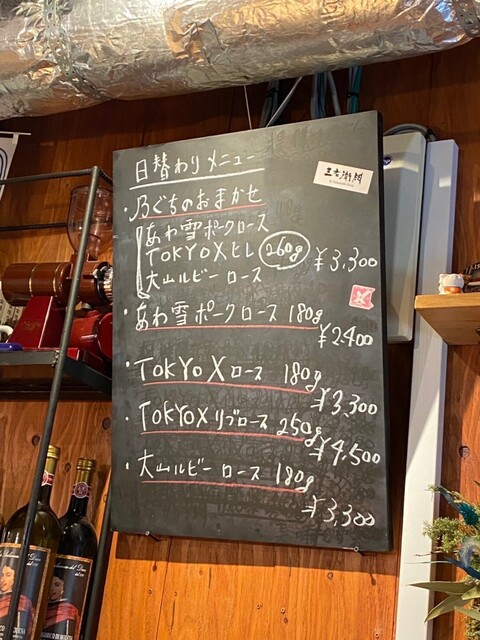 日替わりメニュー
・乃ぐちのおまかせ
あわ雪ポークロース
TOKYO X ヒレ 260g
大山ルビーロース
¥3,300
・あわ雪ポークロース 180g
¥2,400
・TOKYO X ロース 180g
¥3,300
・TOKYO X リブロース 250g
¥4,500
・大山ルビーロース 180g
¥3,300